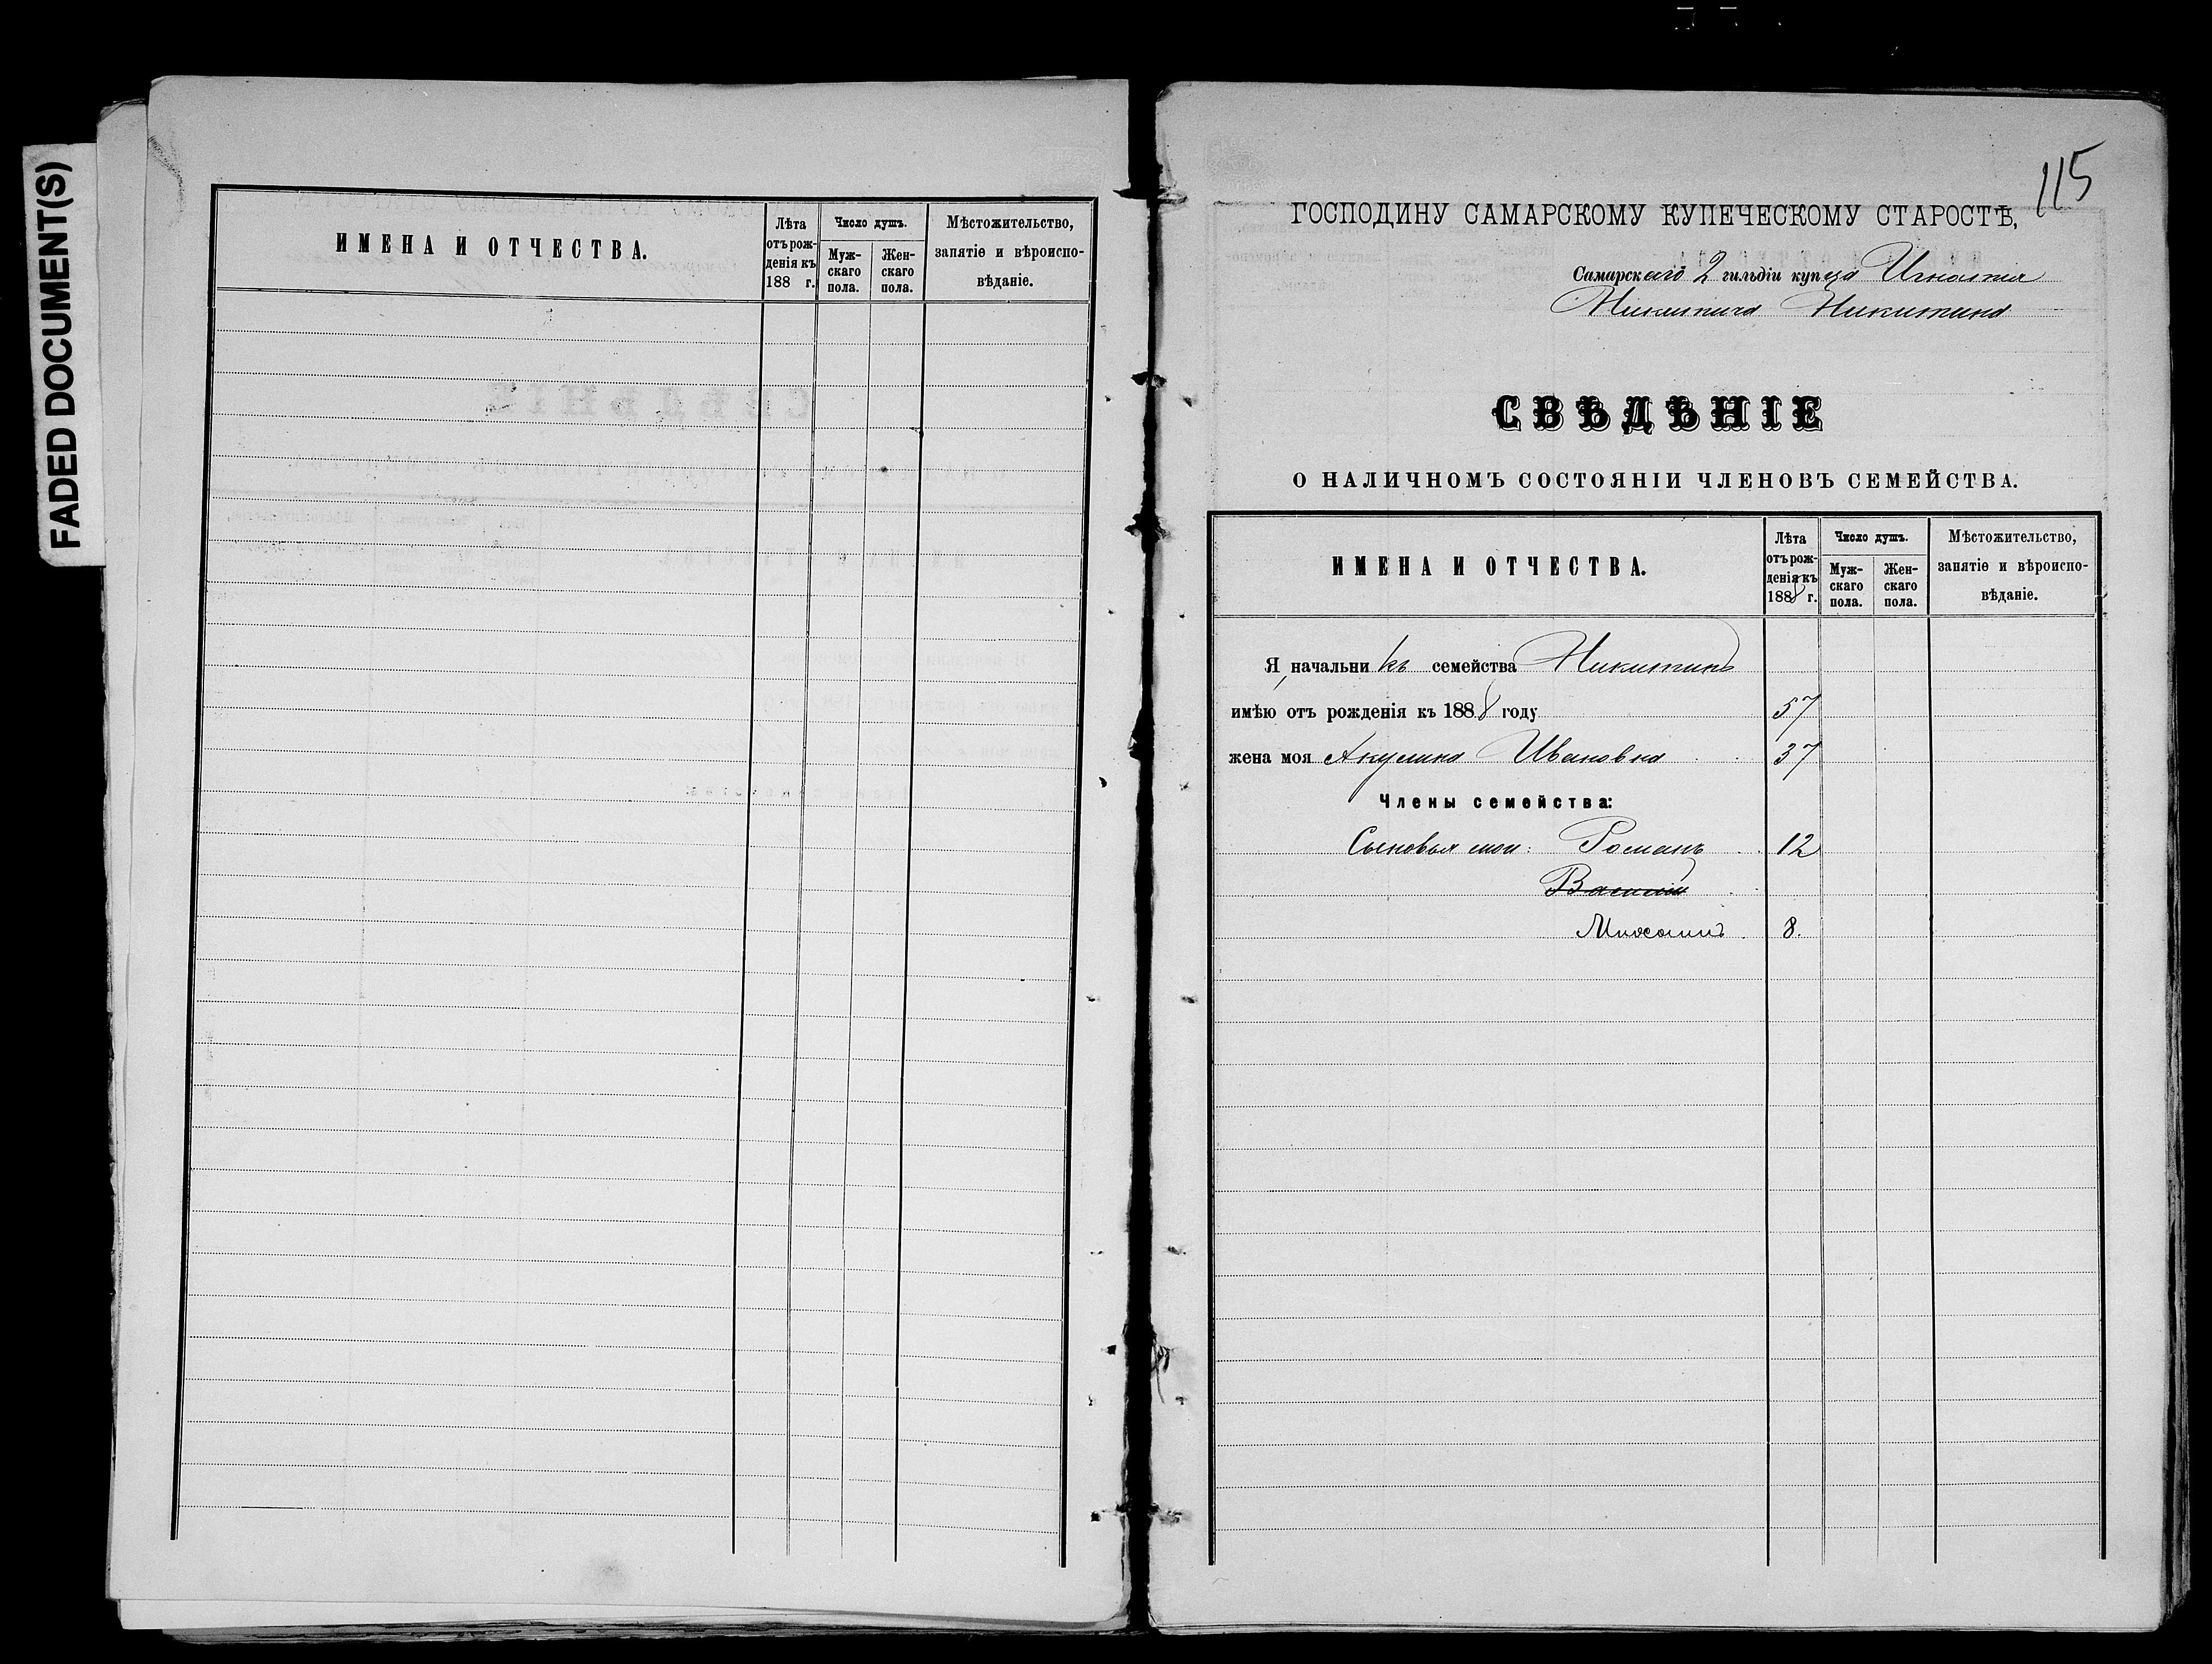 FADED DOCUMENT(S)
ИМЕНА И ОТЧЕСТВА.
Лѣта
отъ рож-
денія къ
188 г.
Число душъ.
Муж-
скаго
пола.
Жен-
скаго
пола.
Мѣстожительство,
занятіе и вѣроиспо-
вѣданіе.
115
ГОСПОДИНУ САМАРСКОМУ КУПЕЧЕСКОМУ СТАРОСТѢ,
Самарскаго 2 гильдіи купца Игнатія
Никитича Никитина
СВѢДѢНІЕ
О НАЛИЧНОМЪ СОСТОЯНІИ ЧЛЕНОВЪ СЕМЕЙСТВА.
ИМЕНА И ОТЧЕСТВА.
Лѣта
отъ рож-
денія къ
1888 г.
Число душъ.
Муж-
скаго
пола.
Жен-
скаго
пола.
Мѣстожительство,
занятіе и вѣроиспо-
вѣданіе.
Я, начальникъ семейства Никитинъ
имѣю отъ рожденія къ 1888 году 57
жена моя Акулина Ивановна 37
Члены семейства:
Сыновья мои: Романъ 12
Василій
Михаилъ 8.